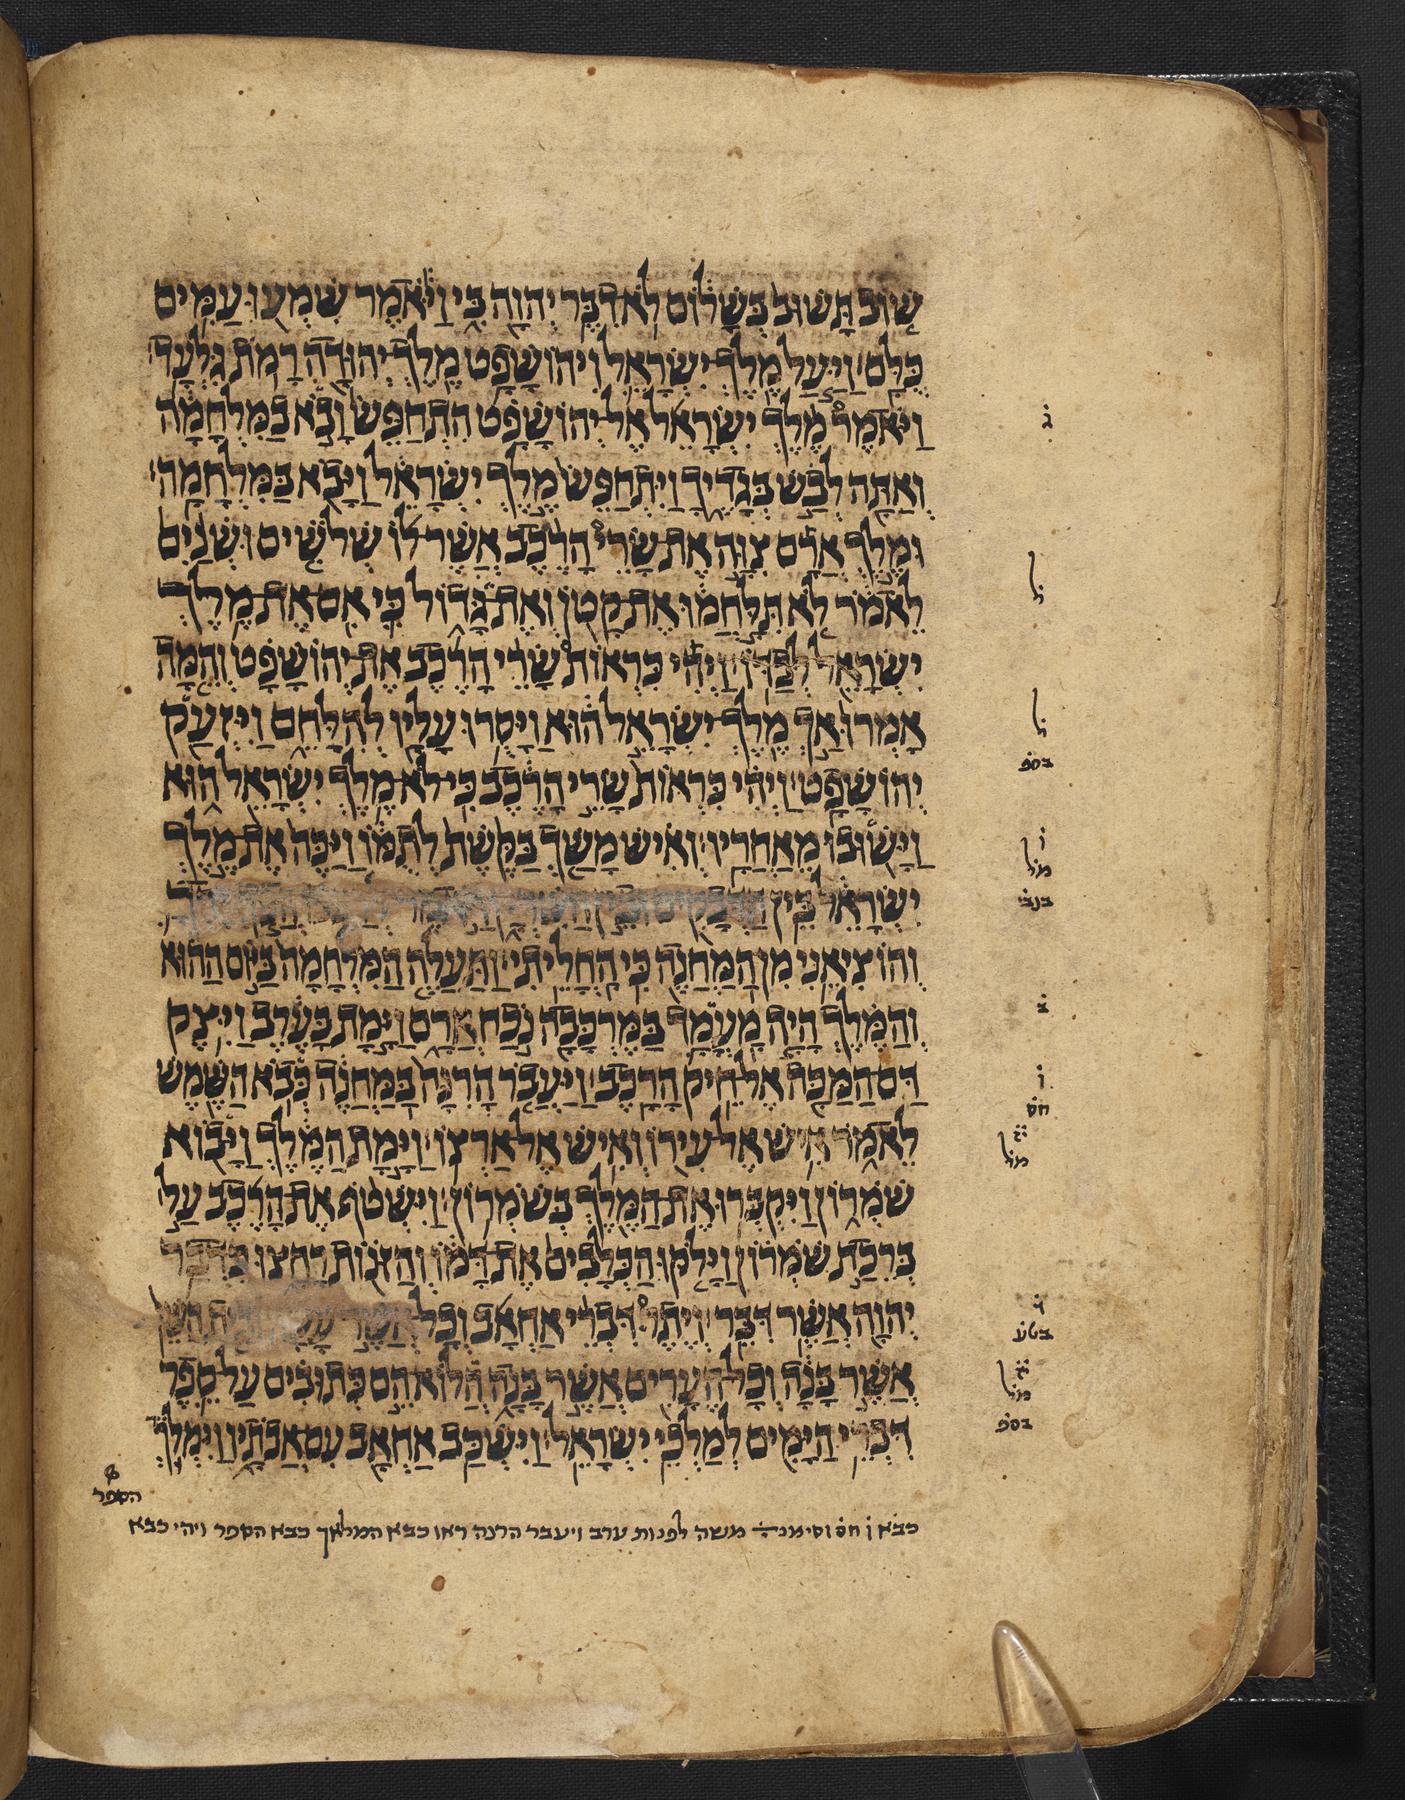 שׁוֹב תָּשׁוּב בְּשָׁלוֹם לֹא דִבֶּר יְהוָה בִּי וַיֹּאמֶר שִׁמְעוּ עַמִּים
כֻּלָּם וַיַּעַל מֶלֶךְ יִשְׂרָאֵל וִיהוֹשָׁפָט מֶלֶךְ יְהוּדָה רָמֹת גִּלְעָד
וַיֹּאמֶר מֶלֶךְ יִשְׂרָאֵל אֶל יְהוֹשָׁפָט הִתְחַפֵּשׂ וָבֹא בַמִּלְחָמָה
וְאַתָּה לְבַשׁ בְּגָדֶיךָ וַיִּתְחַפֵּשׂ מֶלֶךְ יִשְׂרָאֵל וַיָּבֹא בַּמִּלְחָמָה
וּמֶלֶךְ אֲרָם צִוָּה אֶת שָׂרֵי הָרֶכֶב אֲשֶׁר לוֹ שְׁלֹשִׁים וּשְׁנַיִם
לֵאמֹר לֹא תִּלָּחֲמוּ אֶת קָטֹן וְאֶת גָּדוֹל כִּי אִם אֶת מֶלֶךְ
יִשְׂרָאֵל לְבַדּוֹ וַיְהִי כִּרְאוֹת שָׂרֵי הָרֶכֶב אֶת יְהוֹשָׁפָט וְהֵמָּה
אָמְרוּ אַךְ מֶלֶךְ יִשְׂרָאֵל הוּא וַיָּסֻרוּ עָלָיו לְהִלָּחֵם וַיִּזְעַק
יְהוֹשָׁפָט וַיְהִי כִּרְאוֹת שָׂרֵי הָרֶכֶב כִּי לֹא מֶלֶךְ יִשְׂרָאֵל הוּא
וַיָּשׁוּבוּ מֵאַחֲרָיו וְאִישׁ מָשַׁךְ בַּקֶּשֶׁת לְתֻמּוֹ וַיַּכֶּה אֶת מֶלֶךְ
יִשְׂרָאֵל בֵּין הַדְּבָקִים וּבֵין הַשִּׁרְיָן
וְהוֹצִיאֵנִי מִן הַמַּחֲנֶה כִּי הָחֳלֵיתִי וַתַּעֲלֶה הַמִּלְחָמָה בַּיּוֹם הַהוּא
וְהַמֶּלֶךְ הָיָה מָעֳמָד בַּמֶּרְכָּבָה נֹכַח אֲרָם וַיָּמָת בָּעֶרֶב וַיִּצֶק
דַּם הַמַּכָּה אֶל חֵיק הָרָכֶב וַיַּעֲבֹר הָרִנָּה בַּמַּחֲנֶה כְּבֹא הַשֶּׁמֶשׁ
לֵאמֹר אִישׁ אֶל עִירוֹ וְאִישׁ אֶל אַרְצוֹ וַיָּמָת הַמֶּלֶךְ וַיָּבוֹא
שֹׁמְרוֹן וַיִּקְבְּרוּ אֶת הַמֶּלֶךְ בְּשֹׁמְרוֹן וַיִּשְׁטֹף אֶת הָרֶכֶב עַל
בְּרֵכַת שֹׁמְרוֹן וַיָּלֹקּוּ הַכְּלָבִים אֶת דָּמוֹ וְהַזֹּנוֹת רָחָצוּ כִּדְבַר
יְהוָה אֲשֶׁר דִּבֵּר וְיֶתֶר דִּבְרֵי אַחְאָב וְכָל אֲשֶׁר עָשָׂה הַשֵּׁן
אֲשֶׁר בָּנָה וְכָל הֶעָרִים אֲשֶׁר בָּנָה הֲלוֹא הֵם כְּתוּבִים עַל סֵפֶר
דִּבְרֵי הַיָּמִים לְמַלְכֵי יִשְׂרָאֵל וַיִּשְׁכַּב אַחְאָב עִם אֲבֹתָיו וַיִּמְלֹךְ
ג
ל
ל
בספ
ו
מל
בנבי
ב
ו
חס
מל
בטע
מל
בספ
הספר
כבא ו חס וסימנה משה לפנות ערב ויעבר הרנה ראו כבא המלאך כבא הספר ויהי כבא